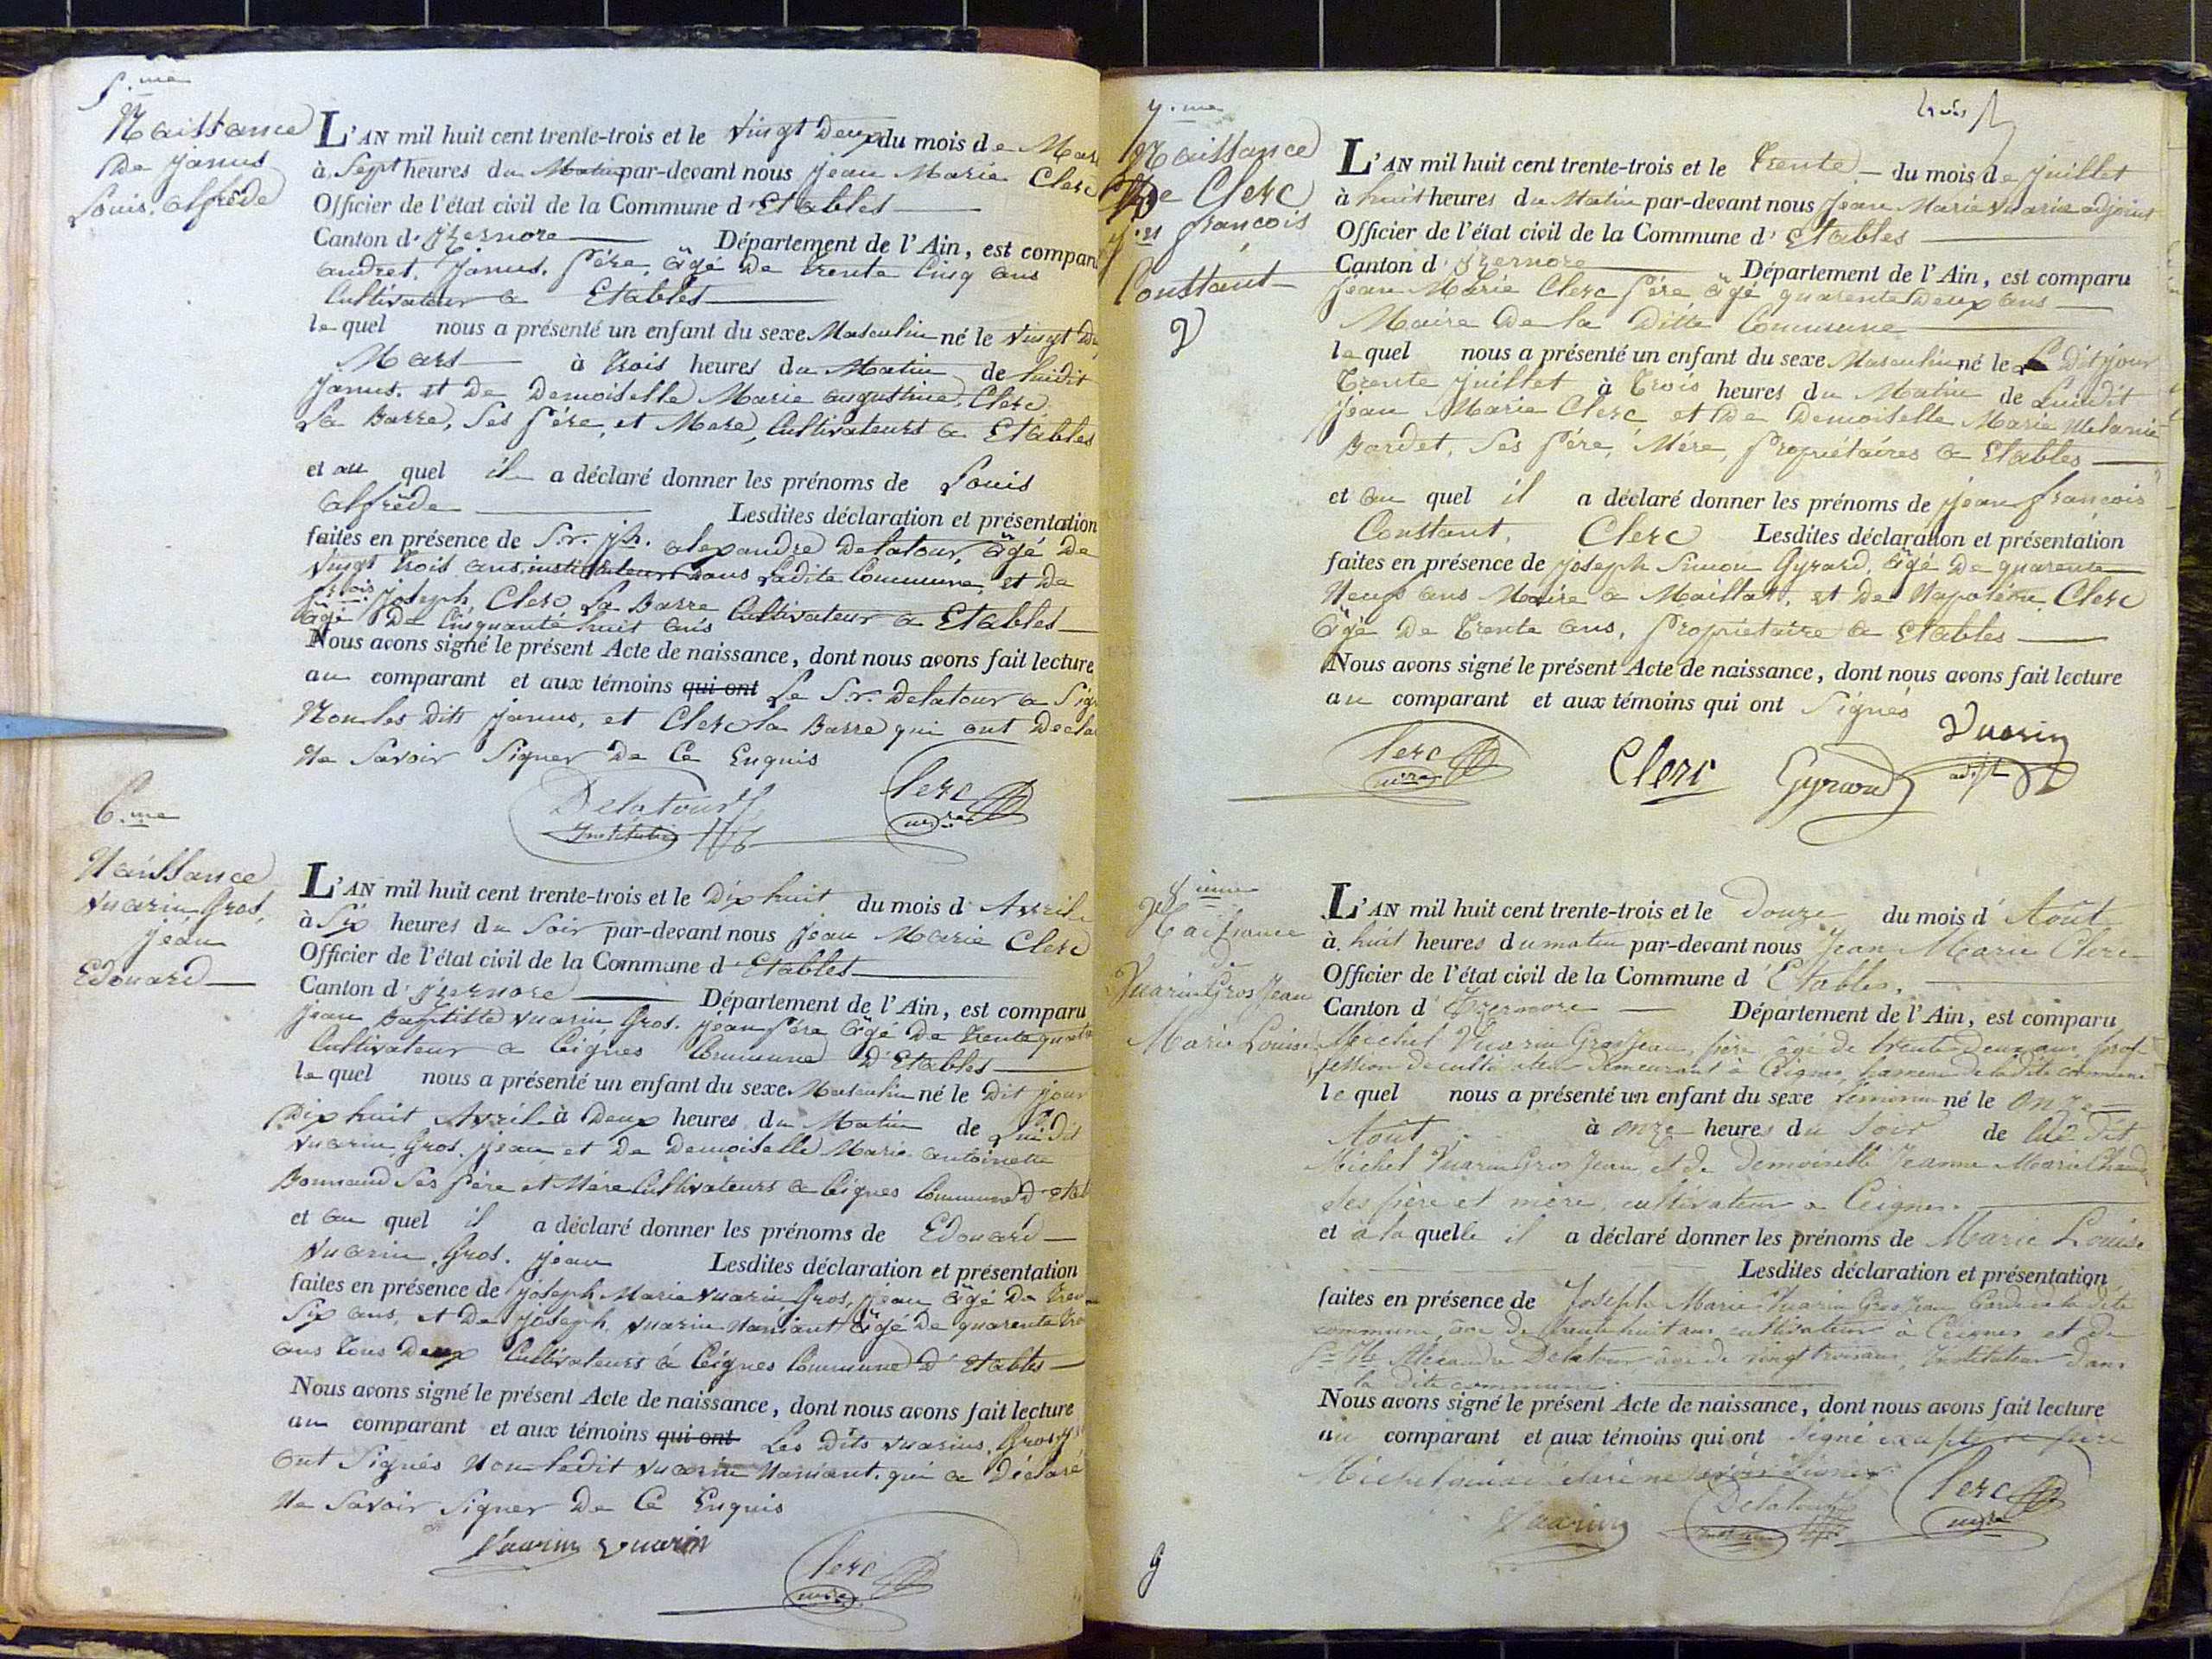 5.me
Naissance
De Janus
Louis. alfrède
L'AN mil huit cent trente-trois et le vingt Deux du mois de Mars
à Sept heures du Matin par-devant nous Jean Marie Clerc
Officier de l'état civil de la Commune d'Etables
Canton d'Izernore Département de l'Ain, est comparu
andret. Janus. Père, âgé De trente Cinq ans
Cultivateur a Etables
le quel nous a présenté un enfant du sexe Masculin né le vingt
Mars à trois heures du Matin de luidit
Janus. et De Demoiselle Marie augustine. Clerc
La Barre, Ses Père, et Mere, Cultivateurs a Etables
et au quel il a déclaré donner les prénoms de Louis
alfrède Lesdites déclaration et présentation
faites en présence de S.r. jh. alexandre Delatour, âgé De
vingt trois ans, instituteur Dans Ladite Commune, et De
Joseph Clerc La Barre Cultivateur a Etables
âgé De Cinquante huit ans
Nous avons signé le présent Acte de naissance, dont nous avons fait lecture
au comparant et aux témoins qui ont Le S.r. Delatour a
Non les dits Janus, et Clerc la Barre qui ont
Ne Savoir Signer De Ce Enquis
Delatour
Clerc
6.me
Naissance
vuarin Gros,
jean
Edouard
L'AN mil huit cent trente-trois et le Dix huit du mois d'Avril
à Six heures du Soir par-devant nous Jean Marie Clerc
Officier de l'état civil de la Commune d'Etables
Canton d'Izernore Département de l'Ain, est comparu
Jean Baptiste vuarin Gros. jean Père âgé De trente quatre
Cultivateur a Ceignes Commune D'Etables
le quel nous a présenté un enfant du sexe Masculin né le Dit jour
Dix huit Avril à Deux heures du Matin de Lui Dit
vuarin. Gros. jean, et De Demoiselle Marie antoinette
Bonnaud Ses Père et Mère Cultivateurs a Ceignes Commune
et au quel il a déclaré donner les prénoms de Edouard
vuarin. Gros. jean Lesdites déclaration et présentation
faites en présence de Joseph Marie vuarin, Gros, jean âgé De
Six ans, et De Joseph vuarin âgé De quarente
ans tous Deux Cultivateurs à Ceignes Commune D'Etables
Nous avons signé le présent Acte de naissance, dont nous avons fait lecture
au comparant et aux témoins qui ont Les Dits vuarins,
ont Signés Non ledit vuarin qui a Déclaré
Ne Savoir Signer De Ce Enquis
Vuarin vuarin
Clerc
trois
7.me
Naissance
De Clerc
françois
Constant
L'AN mil huit cent trente-trois et le trente du mois de Juillet
à huit heures du Matin par-devant nous Jean Marie vuarin adjoint
Officier de l'état civil de la Commune d'Etables
Canton d'Izernore Département de l'Ain, est comparu
Jean Marie Clerc Père, âgé quarente Deux ans
Maire De la Ditte Commune
le quel nous a présenté un enfant du sexe Masculin né le Dit jour
trente Juillet à trois heures du Matin de Luidit
Jean Marie Clerc et De Demoiselle Marie Melanie
Bardet, Ses Père, Mère, Propriétaires a Etables
et au quel il a déclaré donner les prénoms de Jean françois
Constant. Clerc Lesdites déclaration et présentation
faites en présence de Joseph Simon Gyrard, âgé De quarente
Neuf ans Maire a Maillat, et De Napoléon. Clerc
âgé De trente ans, Propriétaire a Etables
Nous avons signé le présent Acte de naissance, dont nous avons fait lecture
au comparant et aux témoins qui ont Signés
Clerc Clerc Gyrard Vuarin
8.ieme
Naissance
de
Vuarin Gros Jean
Marie Louise
L'AN mil huit cent trente-trois et le Douze du mois d'Août
à huit heures du matin par-devant nous Jean Marie Clerc
Officier de l'état civil de la Commune d'Etables.
Canton d'Izernore Département de l'Ain, est comparu
Michel Vuarin Gros Jean, père âgé de trente deux ans, prof-
fession de cultivateur demeurant à Ceignes, hameau de la dite commune
le quel nous a présenté un enfant du sexe féminin né le onze
Août à onze heures du Soir de lui dit
Michel Vuarin Gros Jean, et de demoiselle Jeanne Marie
ses père et mère, cultivateur a Ceignes.
et à la quelle il a déclaré donner les prénoms de Marie Louise
Lesdites déclaration et présentation
faites en présence de Joseph Marie Vuarin Gros Jean, Garde de la dite
commune, âgé de trente huit ans cultivateur à Ceignes et de
Alexandre Delatour âgé de vingt trois ans, Instituteur dans
la dite commune.
Nous avons signé le présent Acte de naissance, dont nous avons fait lecture
au comparant et aux témoins qui ont signé excepté le père
Michel qui a déclaré ne savoir signer.
Vuarin Delatour Clerc